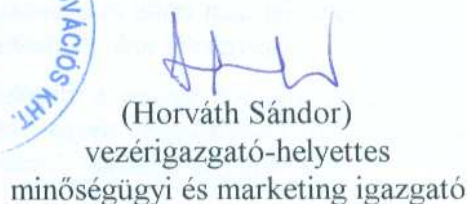 VÁCIÓS KHT.
(Horváth Sándor)
vezérigazgató-helyettes
minőségügyi és marketing igazgató